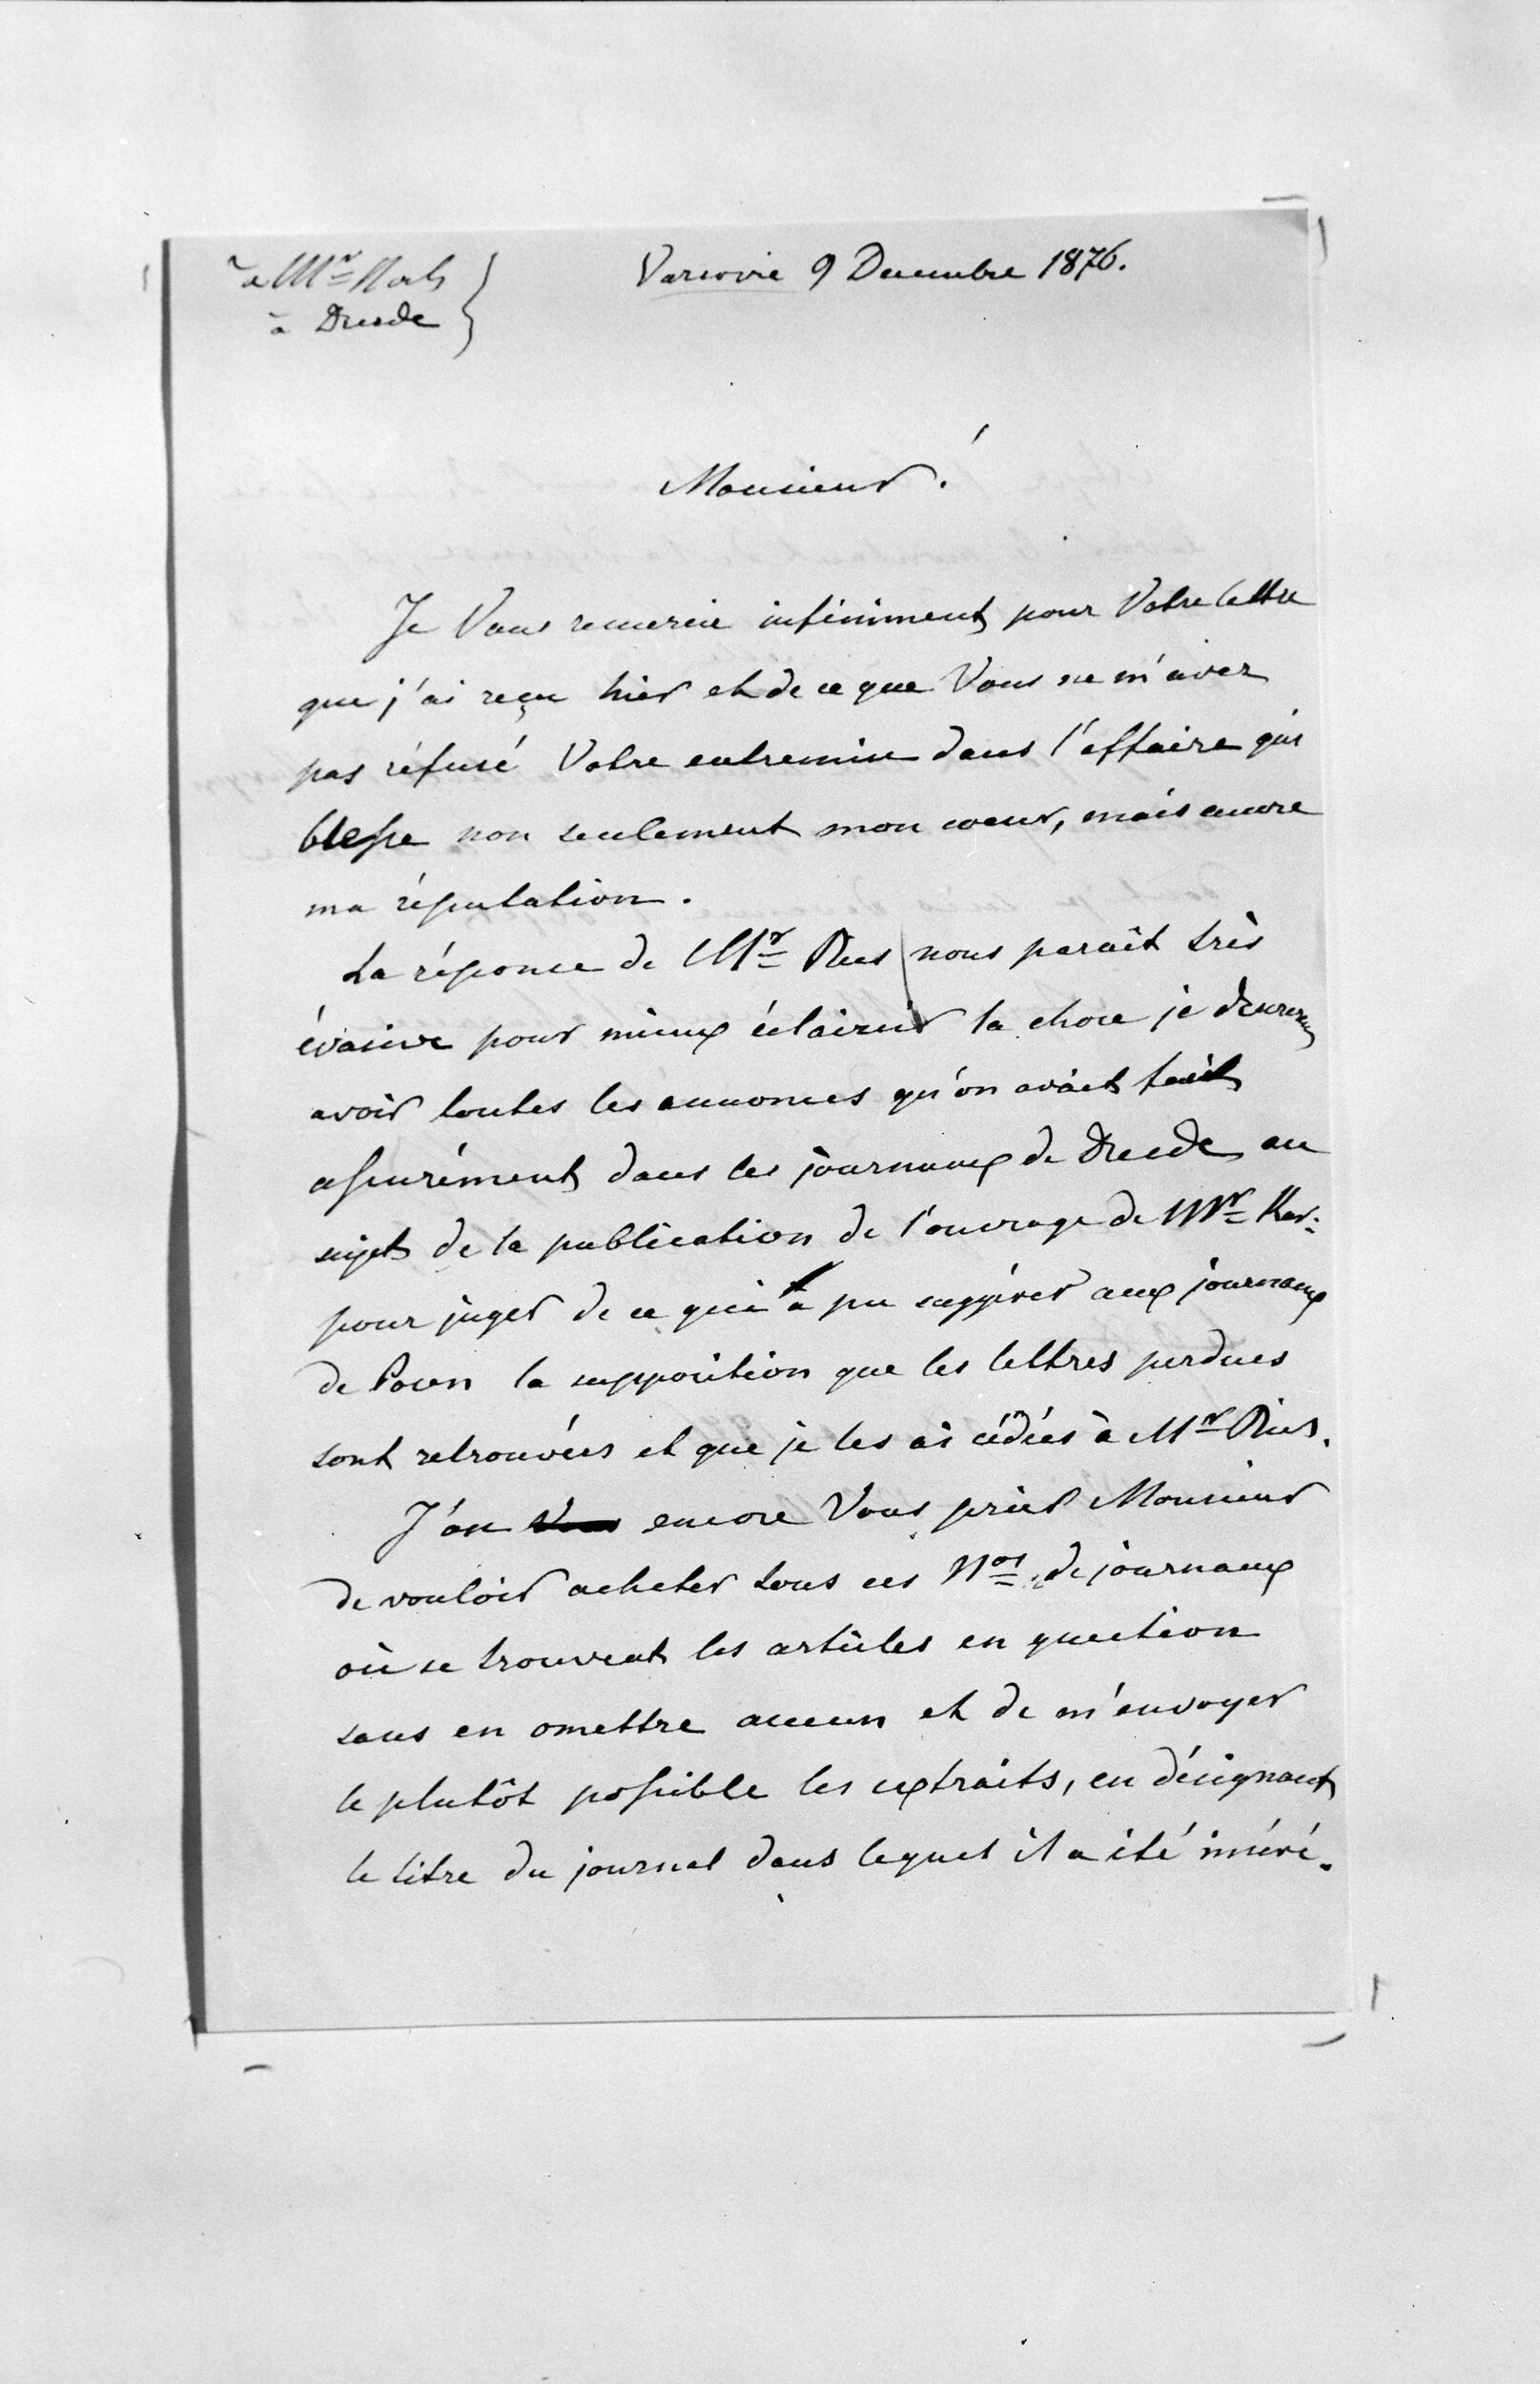 à Mr
à Dresde
Varsovie 9 Decembre 1876.
Monsieur!
Je Vous remercie infiniment pour Votre lettre
que j'ai reçu hier et de ce que Vous ne m'avez
pas réfusé Votre entremise dans l'affaire qui
blesse non seulement mon coeur, mais encore
ma réputation.
La réponse de Mr Ries nous parait très
évasive pour mieux éclaircir la chose je désirerais
avoir toutes les annonces qu'on avait fait
assurément dans les journaux de Dresde au
sujet de la publication de l'ouvrage de Mr Kar:
pour juger de ce qui a pu suggérer aux journaux
de Posen la supposition que les lettres perdues
sont retrouvées et que je les ai cédées à Mr Ries.
J'ose encore Vous prier Monsieur
de vouloir acheter tous ces Nos de journaux
où se trouvent les articles en question
sans en omettre aucun et de m'envoyer
le plutôt possible les extraits, en désignant
le titre du journal dans lequel il a été inséré.